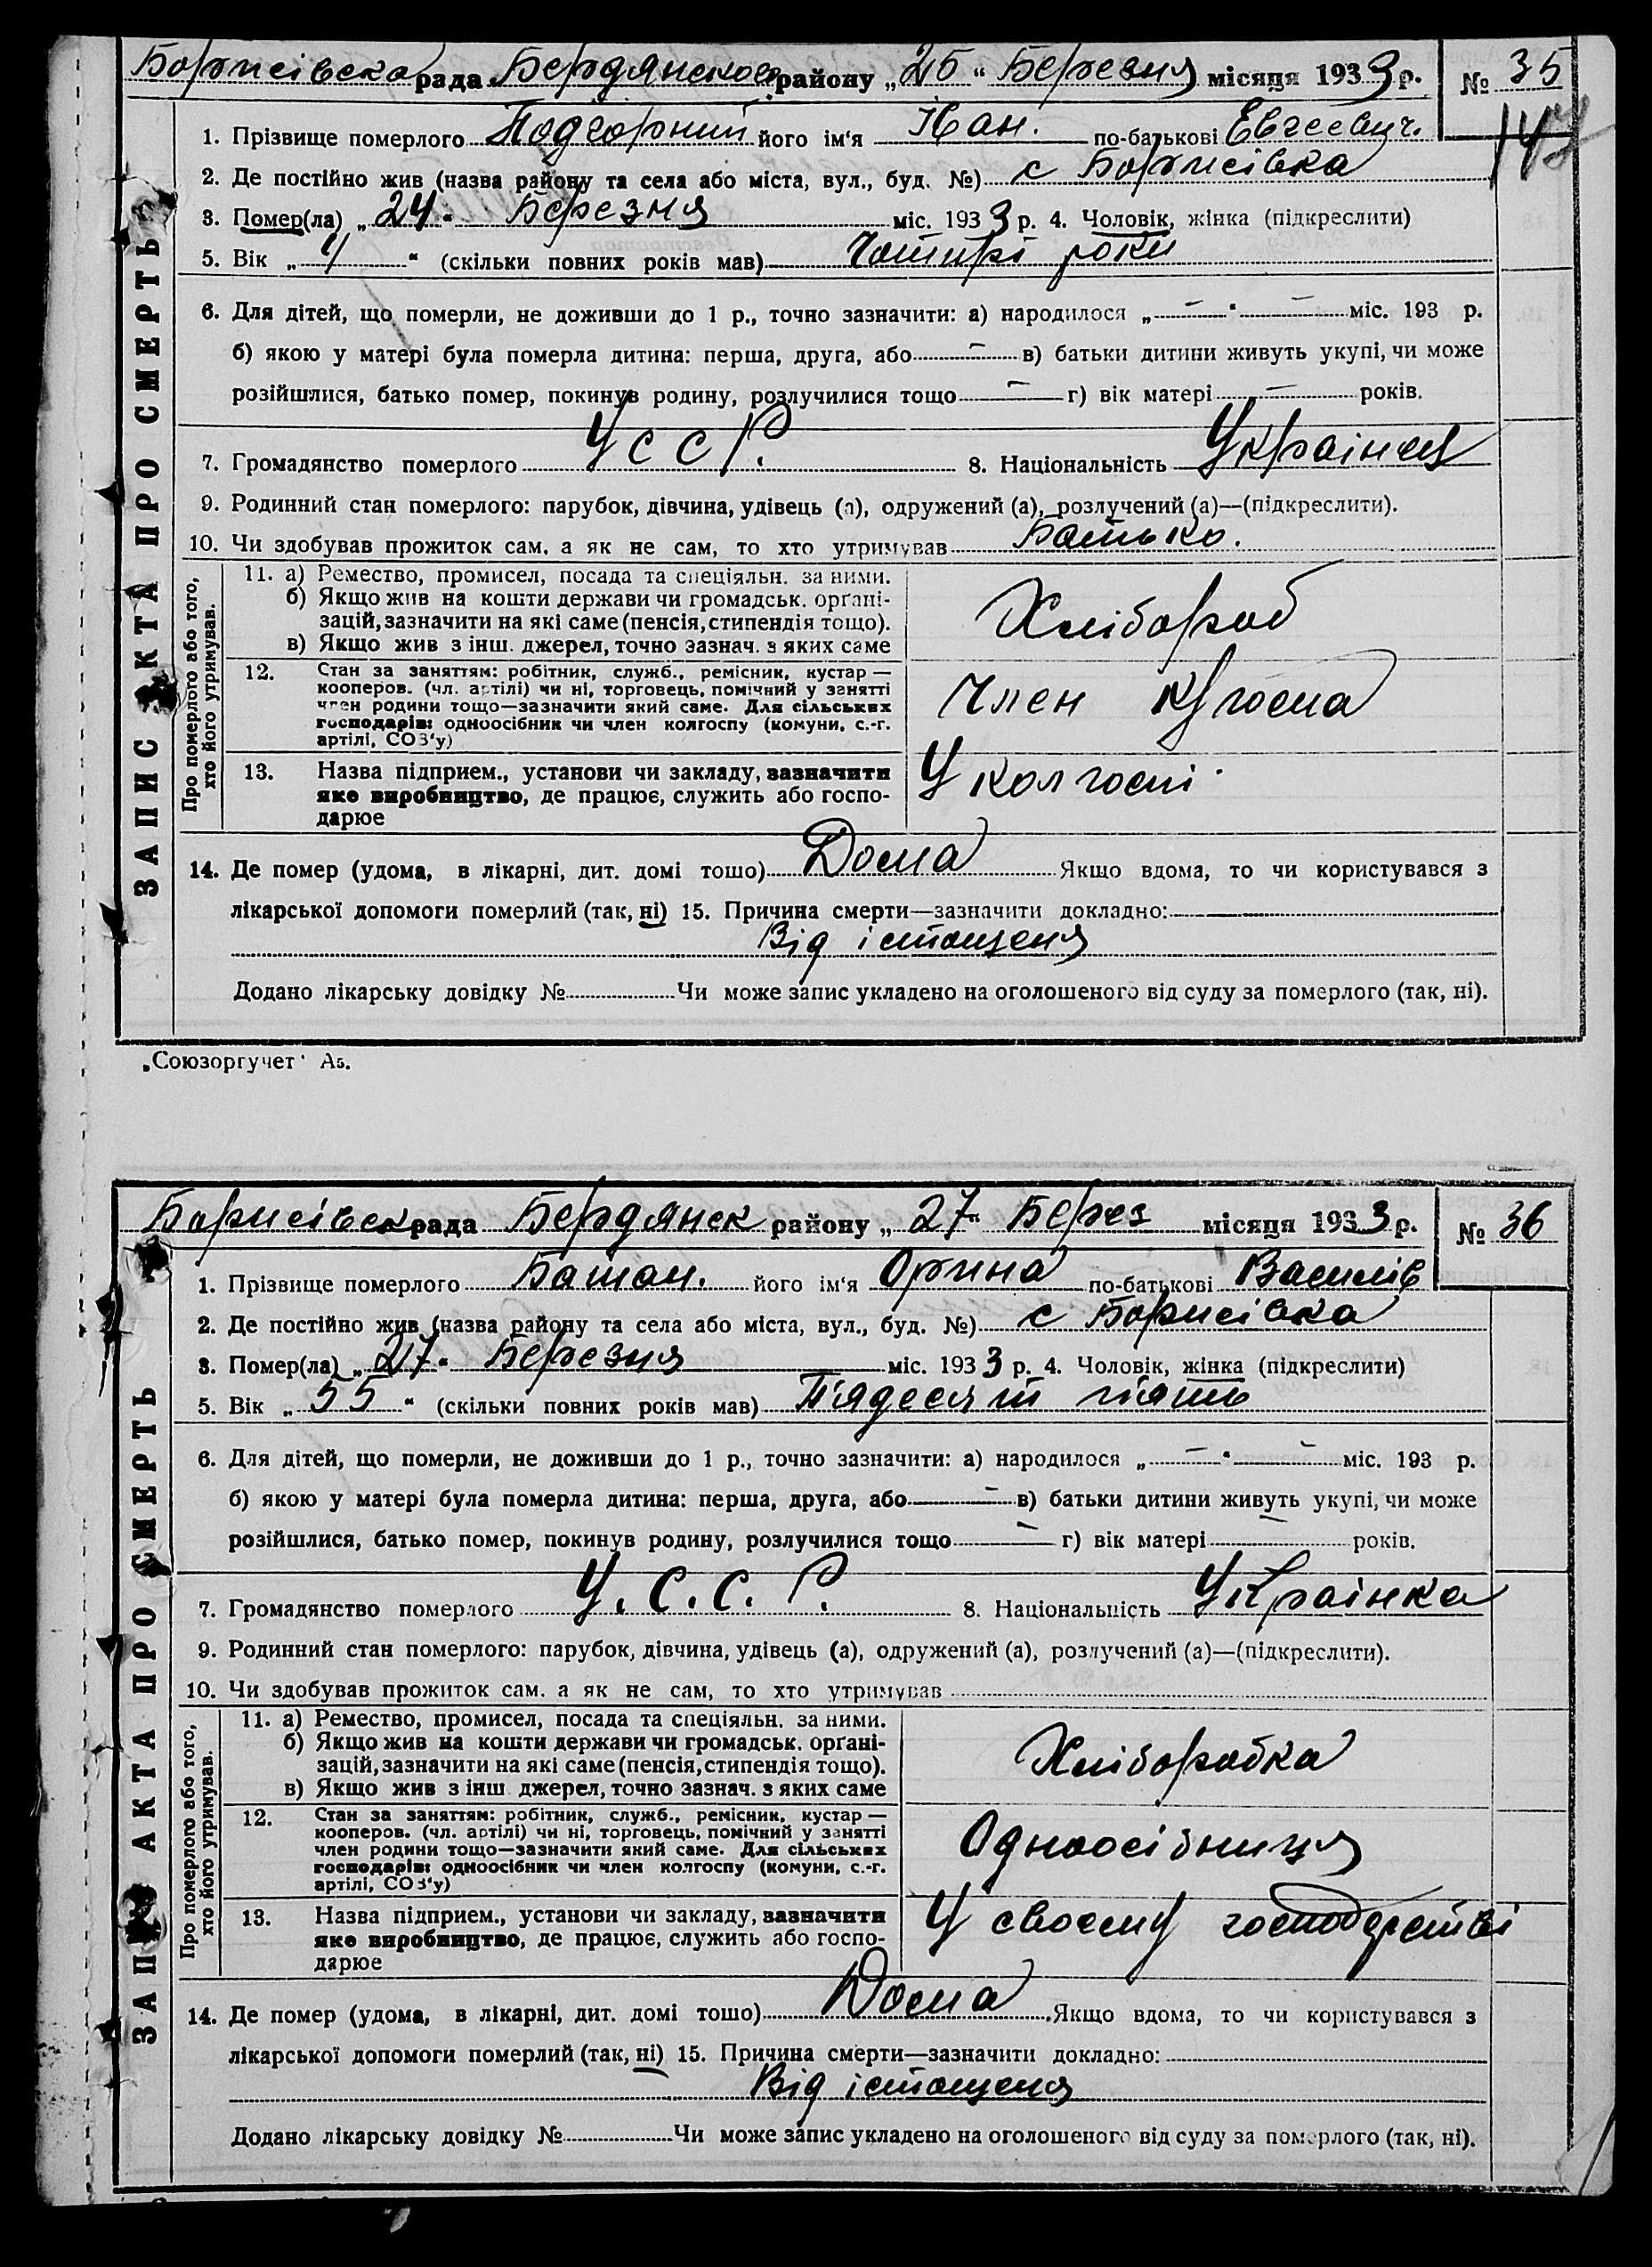 Борисівска рада Бердянского району „25“ Березня місяця 1933 р. № 35
147
1. Прізвище померлого Подгорний його ім'я Іван. по-батькові Евгеевич.
2. Де постійно жив (назва району та села або міста, вул., буд. №) с Борисівка
3. Помер(ла) „24“ Березня міс. 1933 р. 4. Чоловік, жінка (підкреслити)
5. Вік „4“ (скільки повних років мав) Чотирі роки
6. Для дітей, що померли, не доживши до 1 р., точно зазначити: а) народилося „—“ — міс. 193 р.
б) якою у матері була померла дитина: перша, друга, або — в) батьки дитини живуть укупі, чи може
розійшлися, батько помер, покинув родину, розлучилися тощо — г) вік матері — років.
7. Громадянство померлого УССР. 8. Національність Украінец
9. Родинний стан померлого: парубок, дівчина, удівець (а), одружений (а), розлучений (а)—(підкреслити).
10. Чи здобував прожиток сам, а як не сам, то хто утримував Батько.
ЗАПИС АКТА ПРО СМЕРТЬ
Про померлого або того, хто його утримував.
11. а) Ремество, промисел, посада та спеціяльн. за ними.
б) Якщо жив на кошти держави чи громадськ. орґані-
зацій, зазначити на які саме (пенсія, стипендія тощо).
в) Якщо жив з інш. джерел, точно зазнач. з яких саме
Хлібороб
12. Стан за заняттям: робітник, служб., ремісник, кустар —
кооперов. (чл. артілі) чи ні, торговець, помічний у занятті
член родини тощо—зазначити який саме. Для сільських
господарів: одноосібник чи член колгоспу (комуни, с.-г.
артілі, СОЗ'у)
Член
13. Назва підприєм., установи чи закладу, зазначити
яке виробництво, де працює, служить або госпо-
дарює
У колгоспі
14. Де помер (удома, в лікарні, дит. домі тошо) Дома Якщо вдома, то чи користувався з
лікарської допомоги померлий (так, ні) 15. Причина смерти—зазначити докладно:
Від істощеня
Додано лікарську довідку № Чи може запис укладено на оголошеного від суду за померлого (так, ні).
„Союзоргучет“ А5.
Борисівск рада Бердянск району „27“ Берез місяця 1933 р. № 36
1. Прізвище померлого Баташ. його ім'я Орина по-батькові Василів
2. Де постійно жив (назва району та села або міста, вул., буд. №) с Борисівка
3. Помер(ла) „27“ Березня міс. 1933 р. 4. Чоловік, жінка (підкреслити)
5. Вік „55“ (скільки повних років мав) Пядесят пять
6. Для дітей, що померли, не доживши до 1 р., точно зазначити: а) народилося „—“ — міс. 193 р.
б) якою у матері була померла дитина: перша, друга, або — в) батьки дитини живуть укупі, чи може
розійшлися, батько помер, покинув родину, розлучилися тощо — г) вік матері — років.
7. Громадянство померлого У.С.С.Р. 8. Національність Українка
9. Родинний стан померлого: парубок, дівчина, удівець (а), одружений (а), розлучений (а)—(підкреслити).
10. Чи здобував прожиток сам, а як не сам, то хто утримував
ЗАПИС АКТА ПРО СМЕРТЬ
Про померлого або того, хто його утримував.
11. а) Ремество, промисел, посада та спеціяльн. за ними.
б) Якщо жив на кошти держави чи громадськ. орґані-
зацій, зазначити на які саме (пенсія, стипендія тощо).
в) Якщо жив з інш джерел, точно зазнач. з яких саме
Хліборобка
12. Стан за заняттям: робітник, служб., ремісник, кустар —
кооперов. (чл. артілі) чи ні, торговець, помічний у занятті
член родини тощо—зазначити який саме. Для сільських
господарів: одноосібник чи член колгоспу (комуни, с.-г.
артілі, СОЗ'у)
Одноосібниця
13. Назва підприєм., установи чи закладу, зазначити
яке виробництво, де працює, служить або госпо-
дарює
У своєму господарстві
14. Де помер (удома, в лікарні, дит. домі тошо) Дома Якщо вдома, то чи користувався з
лікарської допомоги померлий (так, ні) 15. Причина смерти—зазначити докладно:
Від істощеня
Додано лікарську довідку № Чи може запис укладено на оголошеного від суду за померлого (так, ні).